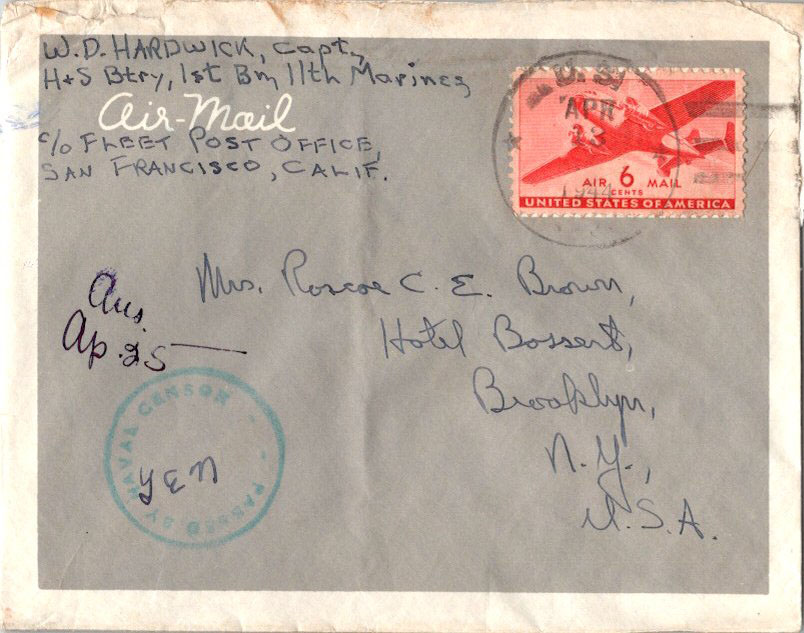 W.D. HARDWICK, Capt,
H+S Btry, 1st Bn, 11th Marines
Air-Mail
c/o FLEET POST OFFICE,
SAN FRANCISCO, CALIF.
U.S.
APR
13
1944
AIR 6 MAIL
CENTS
UNITED STATES OF AMERICA
Mrs. Roscoe C. E. Brown,
Hotel Bossert,
Brooklyn,
N.Y.,
U.S.A.
Ans.
Ap. 25
PASSED BY NAVAL CENSOR